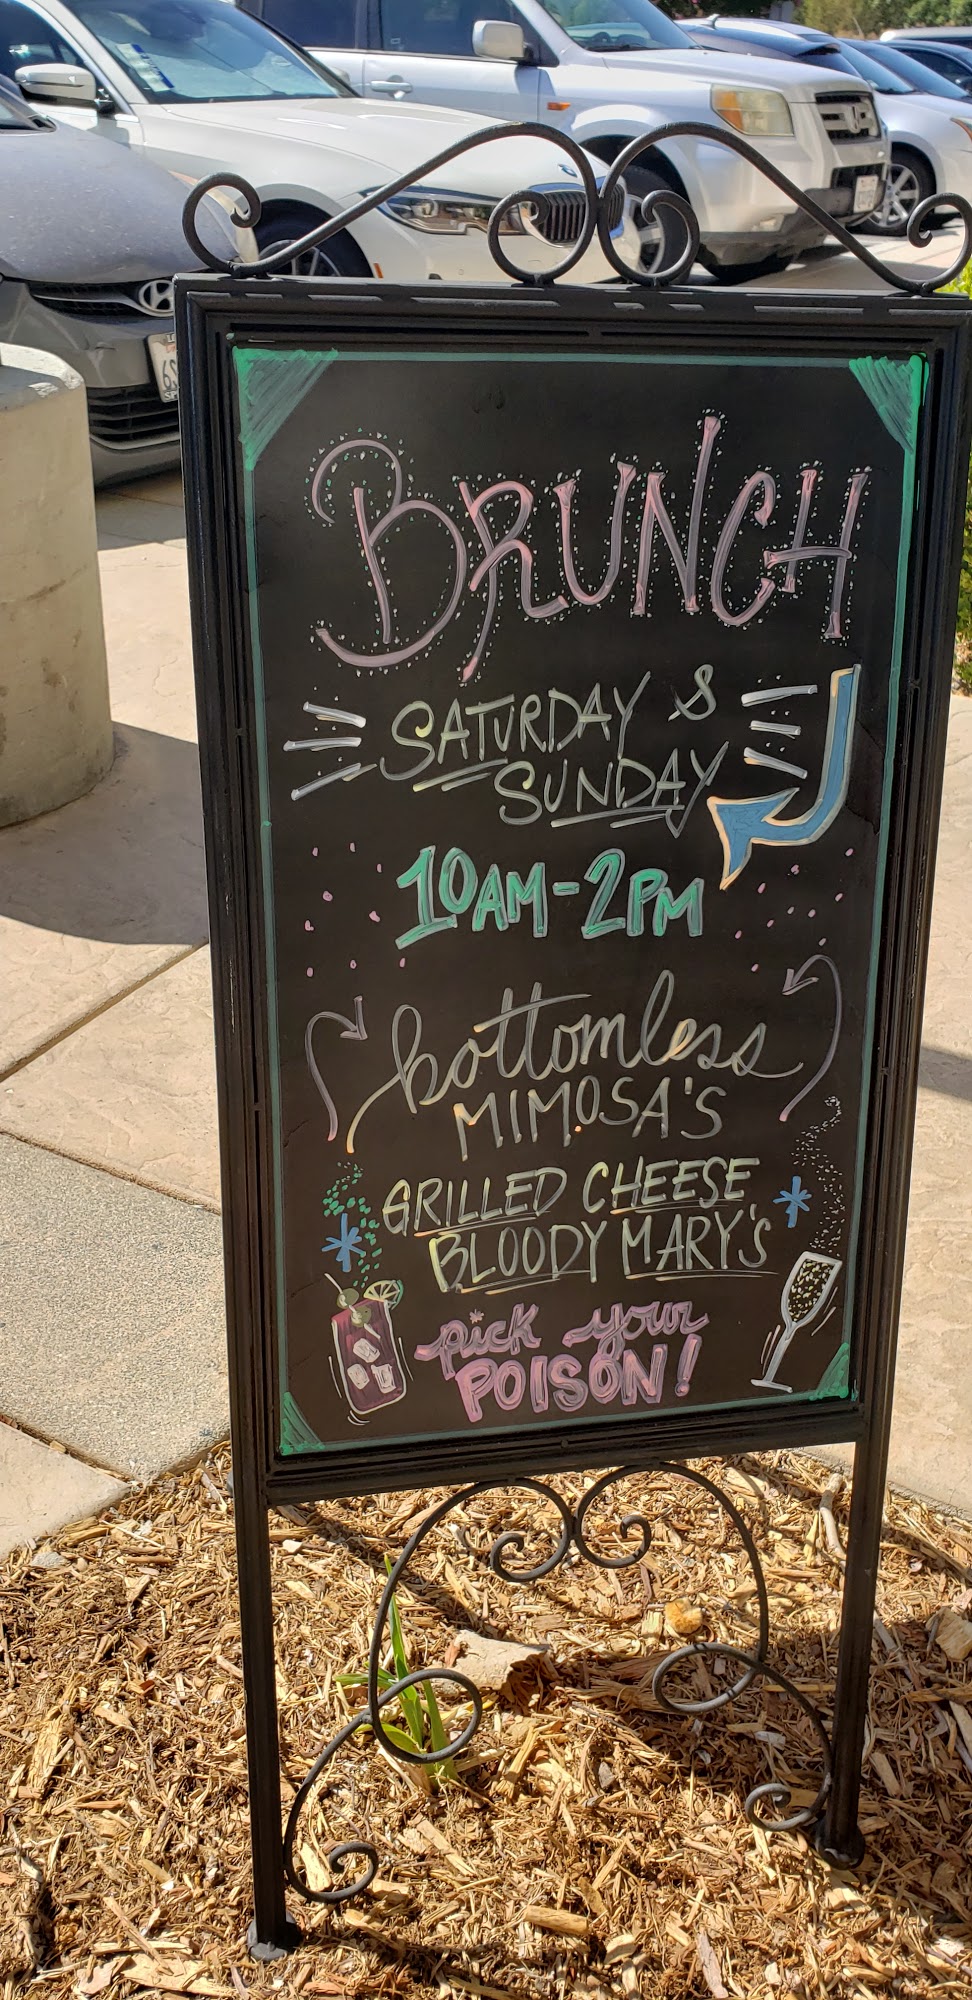 BRUNCH
SATURDAY &
SUNDAY
10AM-2PM
bottomless
MIMOSA'S
GRILLED CHEESE
BLOODY MARY'S
pick your
POISON!